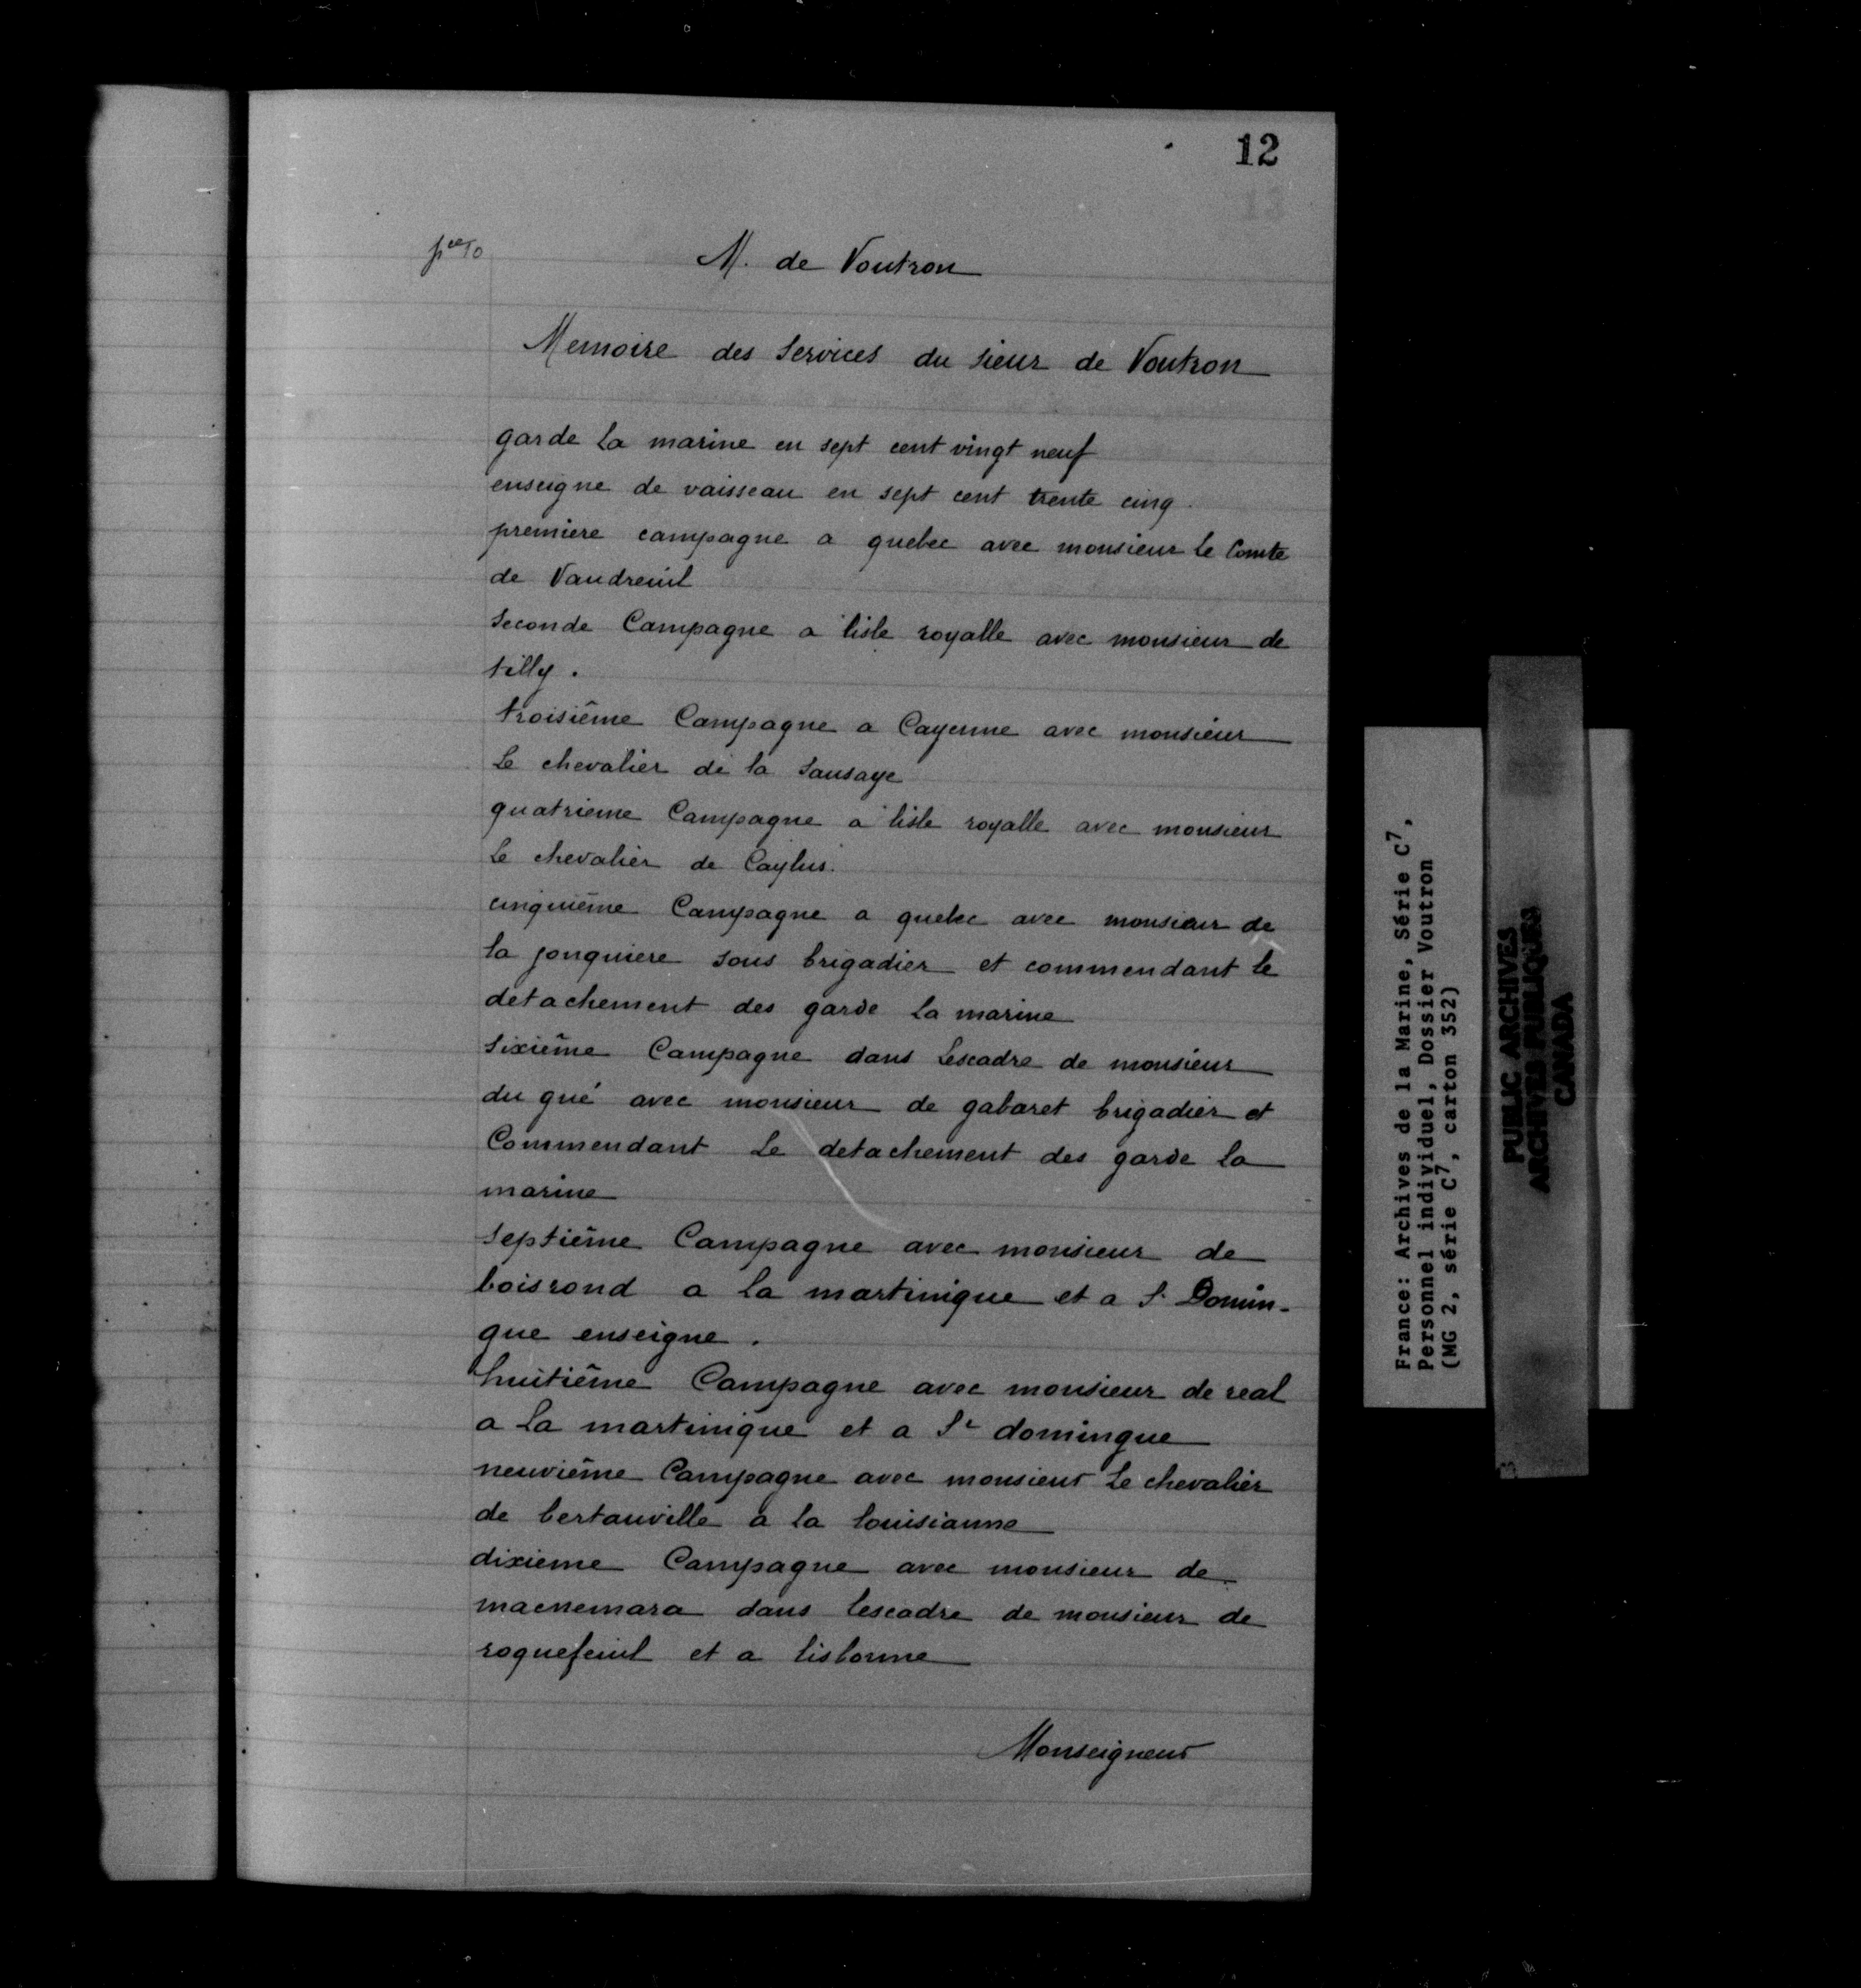 12
M. de Voutron
Memoire des Services du sieur de Voutron
garde la marine en sept cent vingt neuf
enseigne de vaisseau en sept cent trente cinq
premiere campagne a quebec avec monsieur le Comte
de Vaudreuil
Seconde Campagne a lisle royalle avec monsieur de
tilly.
troisiême Campagne a Cayenne avec monsieur
le chevalier de la Sausaye
quatrieme Campagne a lisle royalle avec monsieur
le chevalier de Caylus.
cinquiême Campagne a quebec avec monsieur de
la jonquiere sous brigadier et commendant le
detachement des garde la marine
Sixiême Campagne dans Lescadre de monsieur
du gué avec monsieur de gabaret brigadier et
Commendant le detachement des garde la
marine
Septiême Campagne avec monsieur de
boisrond a la martinique et a St Domin-
gue enseigne.
huitiême Campagne avec monsieur de real
a la martinique et a St domingue
neuviême Campagne avec monsieur le chevalier
de bertauville a la louisianne
dixieme Campagne avec monsieur de
macnemara dans lescadre de monsieur de
roquefeuil et a lisbonne
Monseigneur
France: Archives de la Marine, Série C7,
Personnel individuel, Dossier Voutron
(MG 2, série C7, carton 352)
PUBLIC ARCHIVES
ARCHIVES PUBLIQUES
CANADA